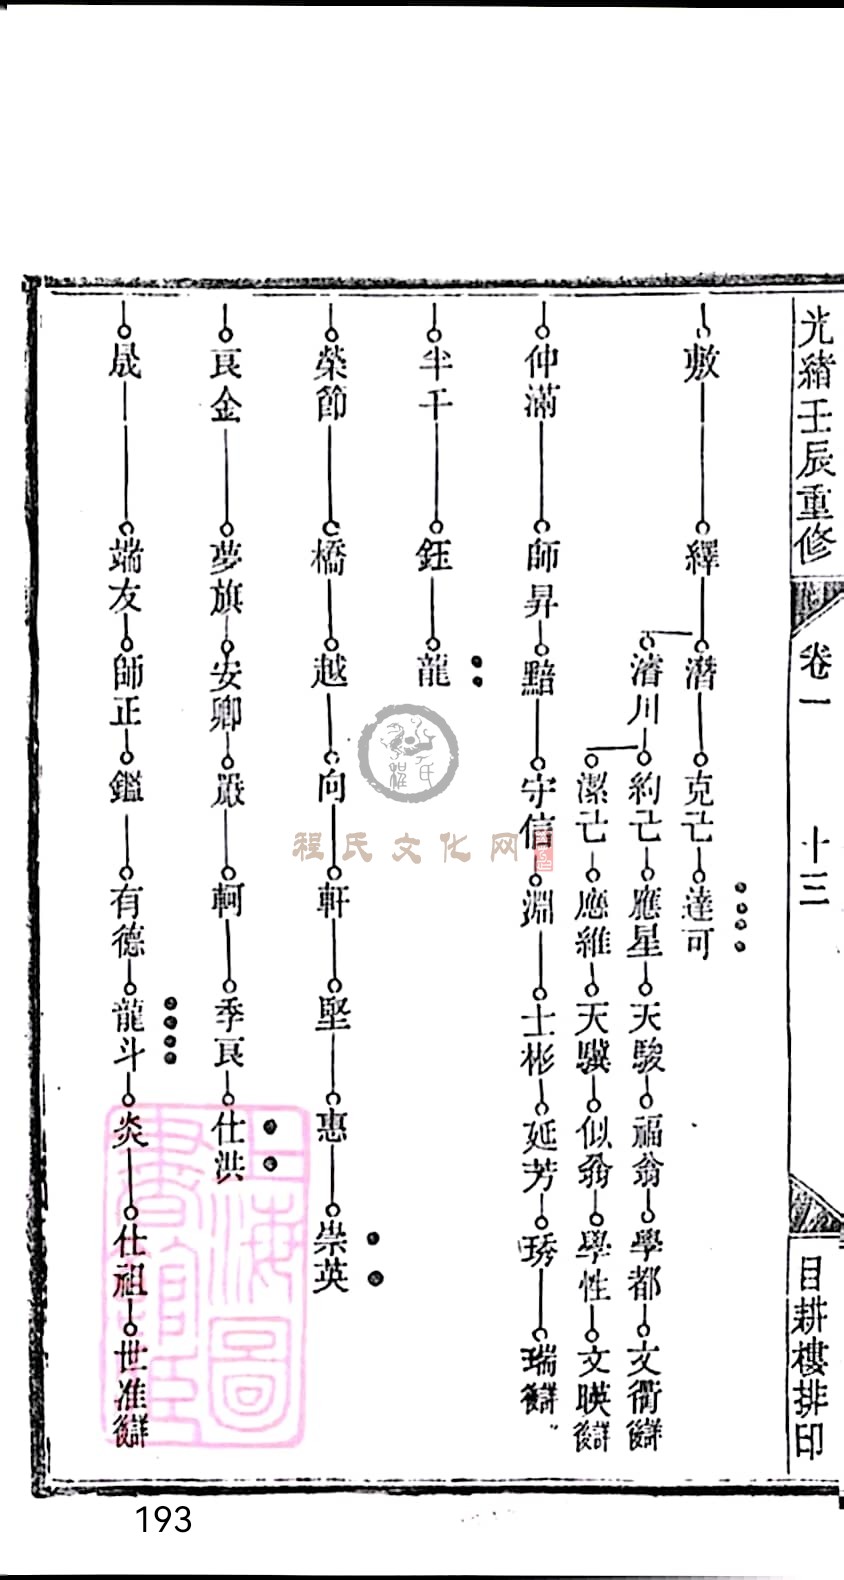 光緒壬辰重修
卷一
十三
目耕樓排印
敷 繹 潛 克己 達可
濬川 約己 應星 天駿 福翁 學都 文衢詳後
潔己 應維 天驥 似翁 學性 文暎詳後
仲滿 師昇 黯 守信 淵 士彬 延芳 琇 瑞詳後
半千 鈺 龍
榮節 橋 越 向 軒 堅 惠 崇英
良金 夢旗 安卿 嚴 軻 季良 仕洪
晟 端友 師正 鑑 有德 龍斗 炎 仕祖 世准詳後
程氏
程氏文化网
上海圖書館藏
193